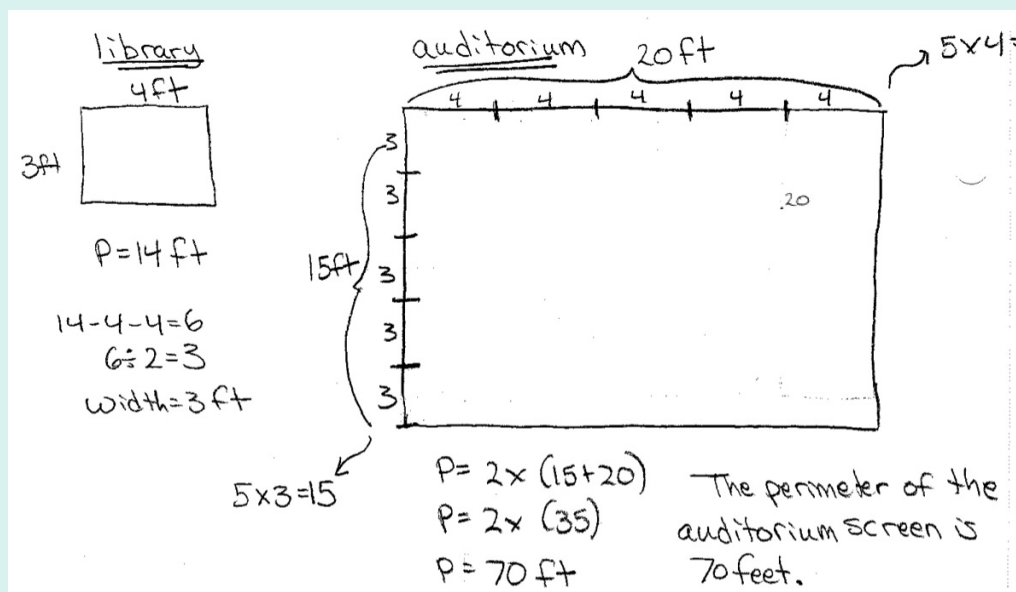 library
4ft
3ft
P=14ft
14-4-4=6
6÷2=3
width=3ft
auditorium
20ft
5x4=
4 4 4 4 4
3
3
3
3
3
15ft
.20
5x3=15
P= 2x (15+20)
P= 2x (35)
P= 70ft
The perimeter of the
auditorium screen is
70 feet.